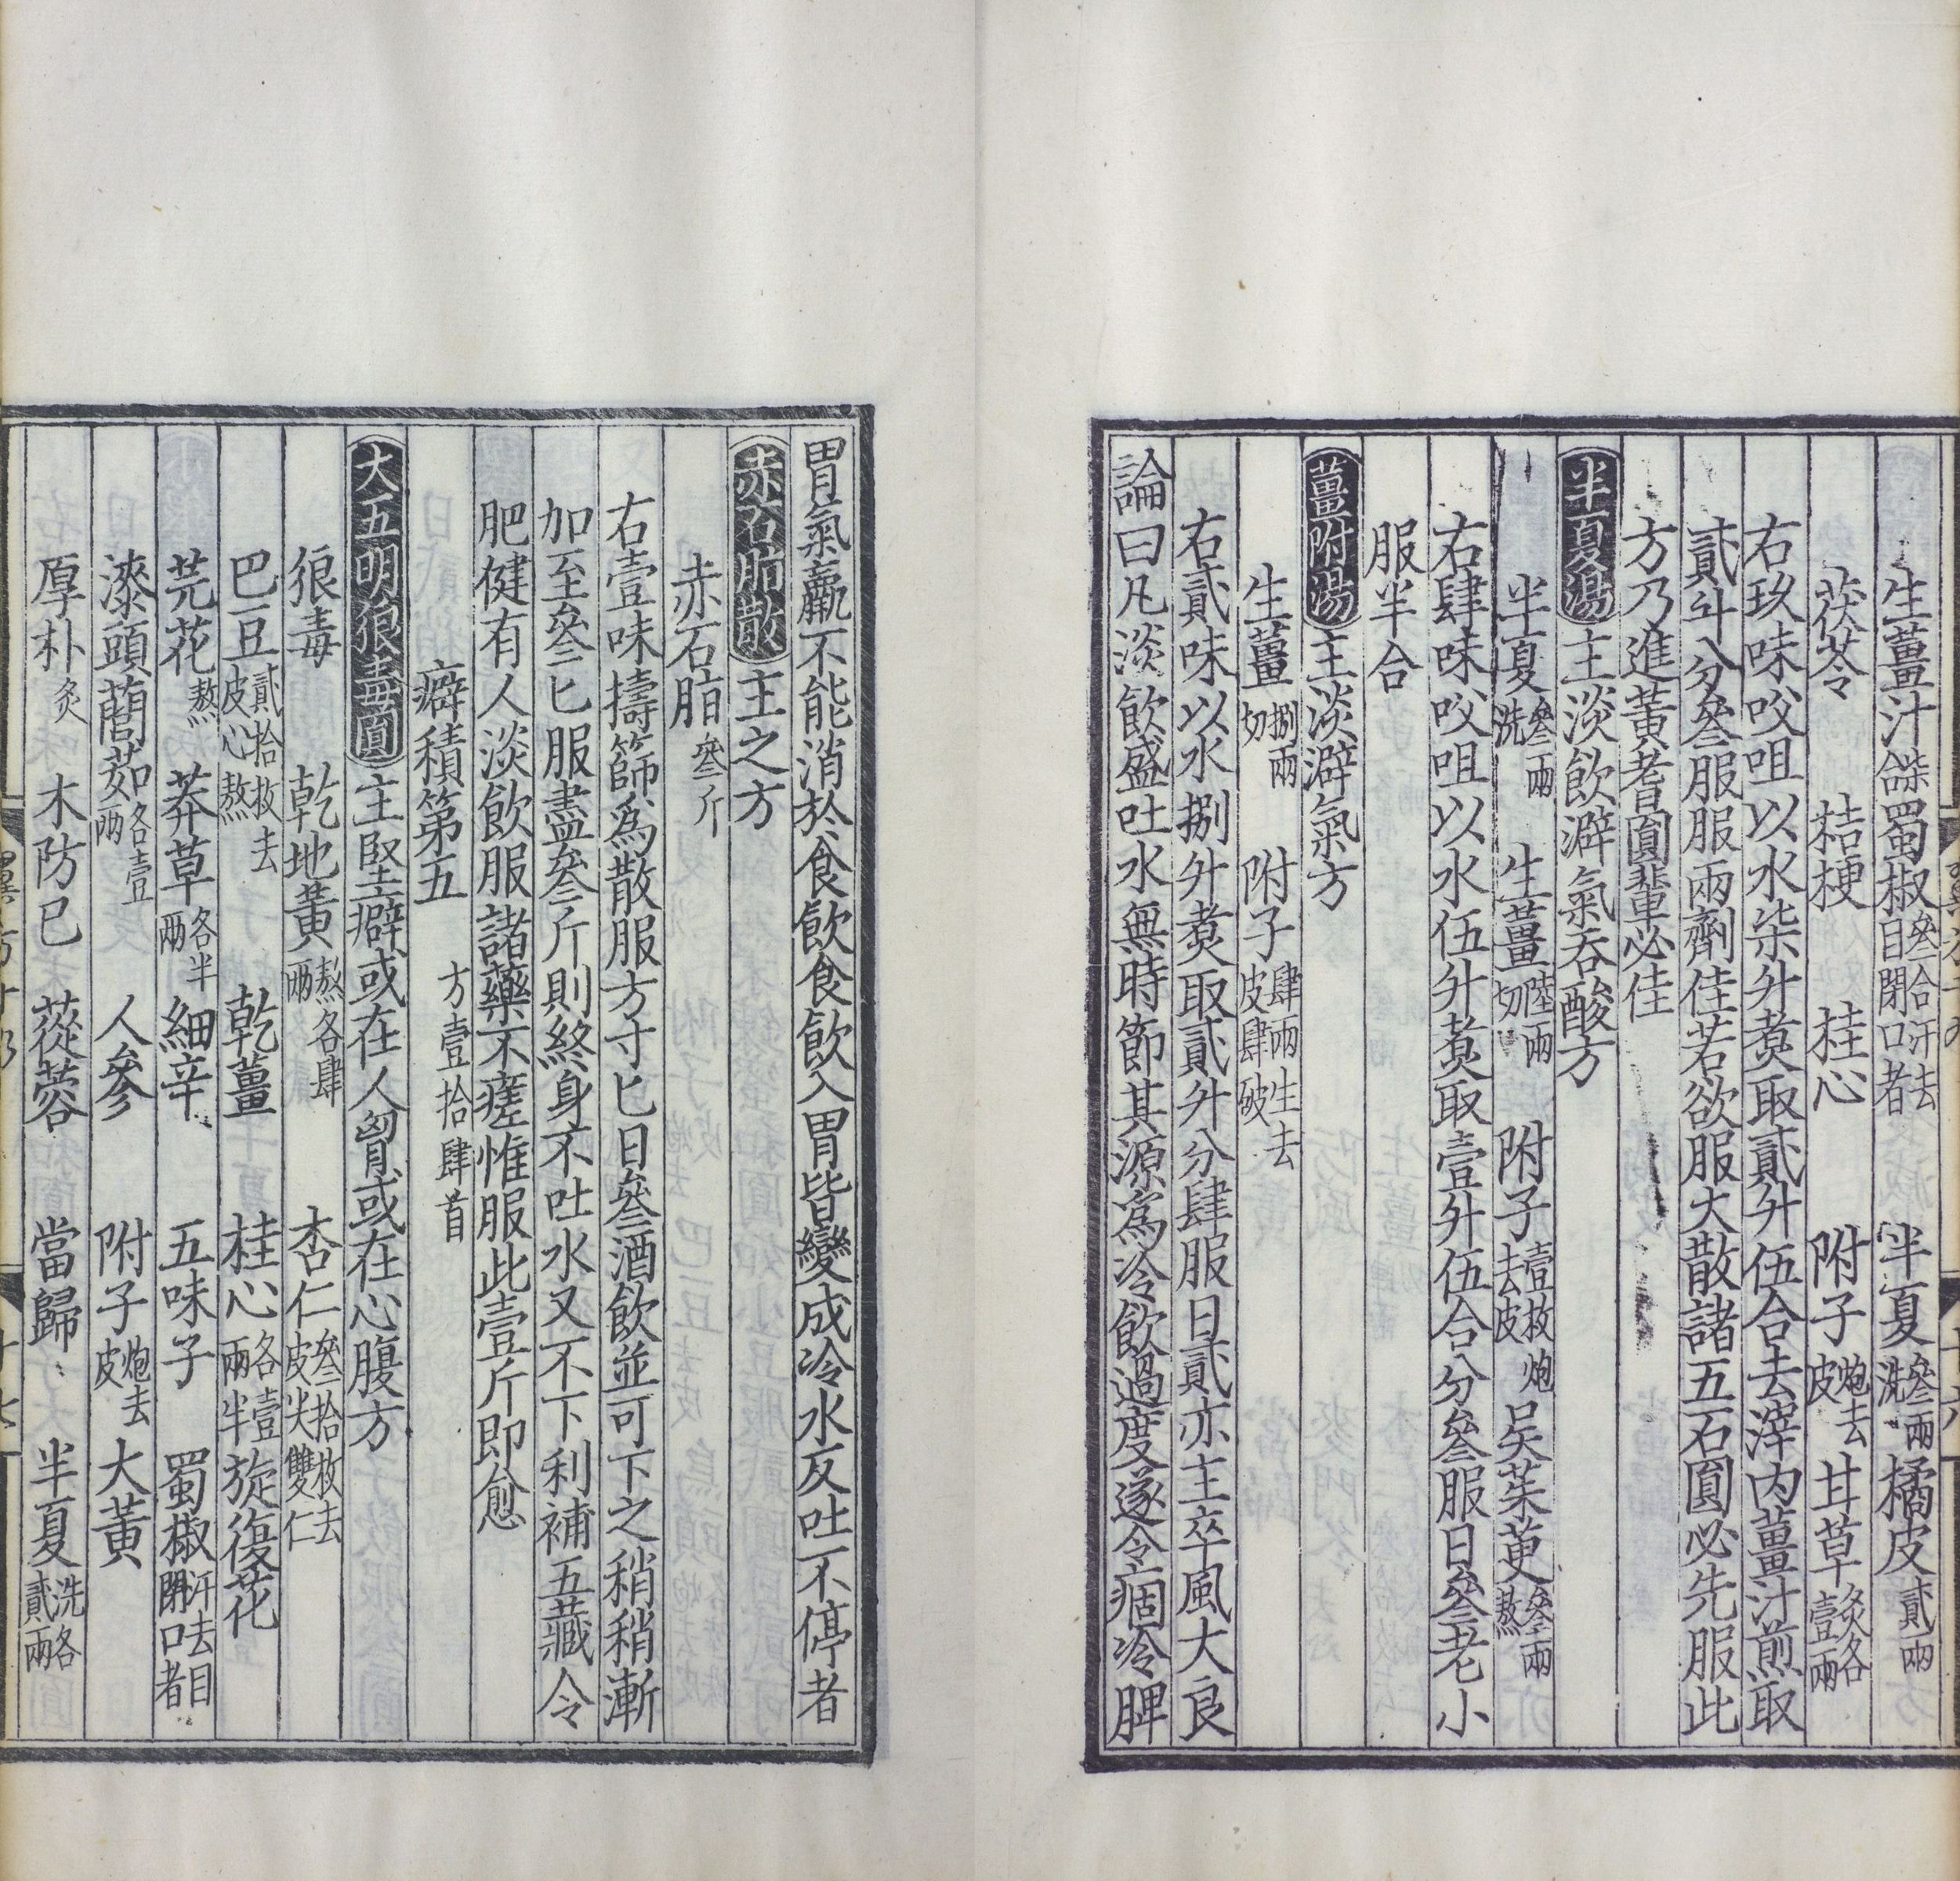 生薑汁㕮蜀椒叄合汗去目閉口者半夏叄兩洗橘皮貳兩
茯苓桔梗桂心附子炮去皮甘草炙各壹兩
右玖味㕮咀以水柒升煑取貳升伍合去滓内薑汁煎取
貳斗分叄服服兩劑佳若欲服大散諸五石圓必先服此
方乃進黃耆圓輩必佳
半夏湯主淡飲澼氣吞酸方
半夏叄兩洗生薑陸兩切附子壹枚炮去皮吳茱萸叄兩熬
右肆味㕮咀以水伍升煑取壹升伍合分叄服日叄老小
服半合
薑附湯主淡澼氣方
生薑捌兩切附子肆兩生去皮肆破
右貳味以水捌升煑取貳升分肆服日貳亦主卒風大良
論曰凡淡飲盛吐水無時節其源爲冷飲過度遂令痼冷脾
胃氣羸不能消於食飲食飲入胃皆變成冷水反吐不停者
赤石脂散主之方
赤石脂叄斤
右壹味擣篩爲散服方寸匕日叄酒飲並可下之稍稍漸
加至叄匕服盡叄斤則終身不吐水又不下利補五藏令
肥健有人淡飲服諸藥不瘥惟服此壹斤即愈
癖積第五方壹拾肆首
大五明狼毒圓主堅癖或在人胷或在心腹方
狼毒乾地黃熬各肆兩杏仁叄拾枚去皮尖雙仁
巴豆貳拾枚去皮心熬乾薑桂心各壹兩半旋復花
芫花熬莽草各半兩細辛五味子蜀椒汗去目閉口者
漆頭䕡茹各壹兩人參附子炮去皮大黃
厚朴炙木防己蓯蓉當歸半夏洗各貳兩